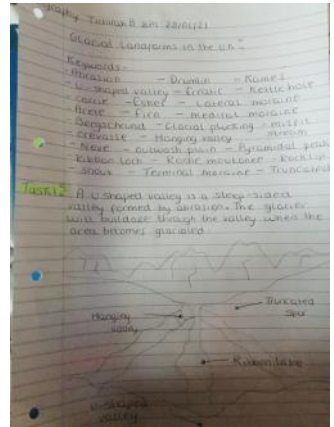 Geography Tutorial 28/01/21
Glacial Landforms in the U.K:
Keywords -
- Abrasion - Drumlin - Kames
- U-shaped valley - Erratic - Kettle hole
- Corrie - Esker - Lateral moraine
- Arete - Firn - medial moraine
- Bergschrund - Glacial plucking - misfit
- crevasse - Hanging valley stream
- Neve - outwash plain - Pyramidal peak
- Ribbon Loch - Roche moutonee - Rock lip
- snout - Terminal moraine - Truncated
Task 12 A U shaped valley is a steep-sided
valley formed by abrasion. The glacier
will bulldoze through the valley when the
area becomes glaciated
Truncated
Hanging spur
valley
Ribbon Lake
U-shaped
valley